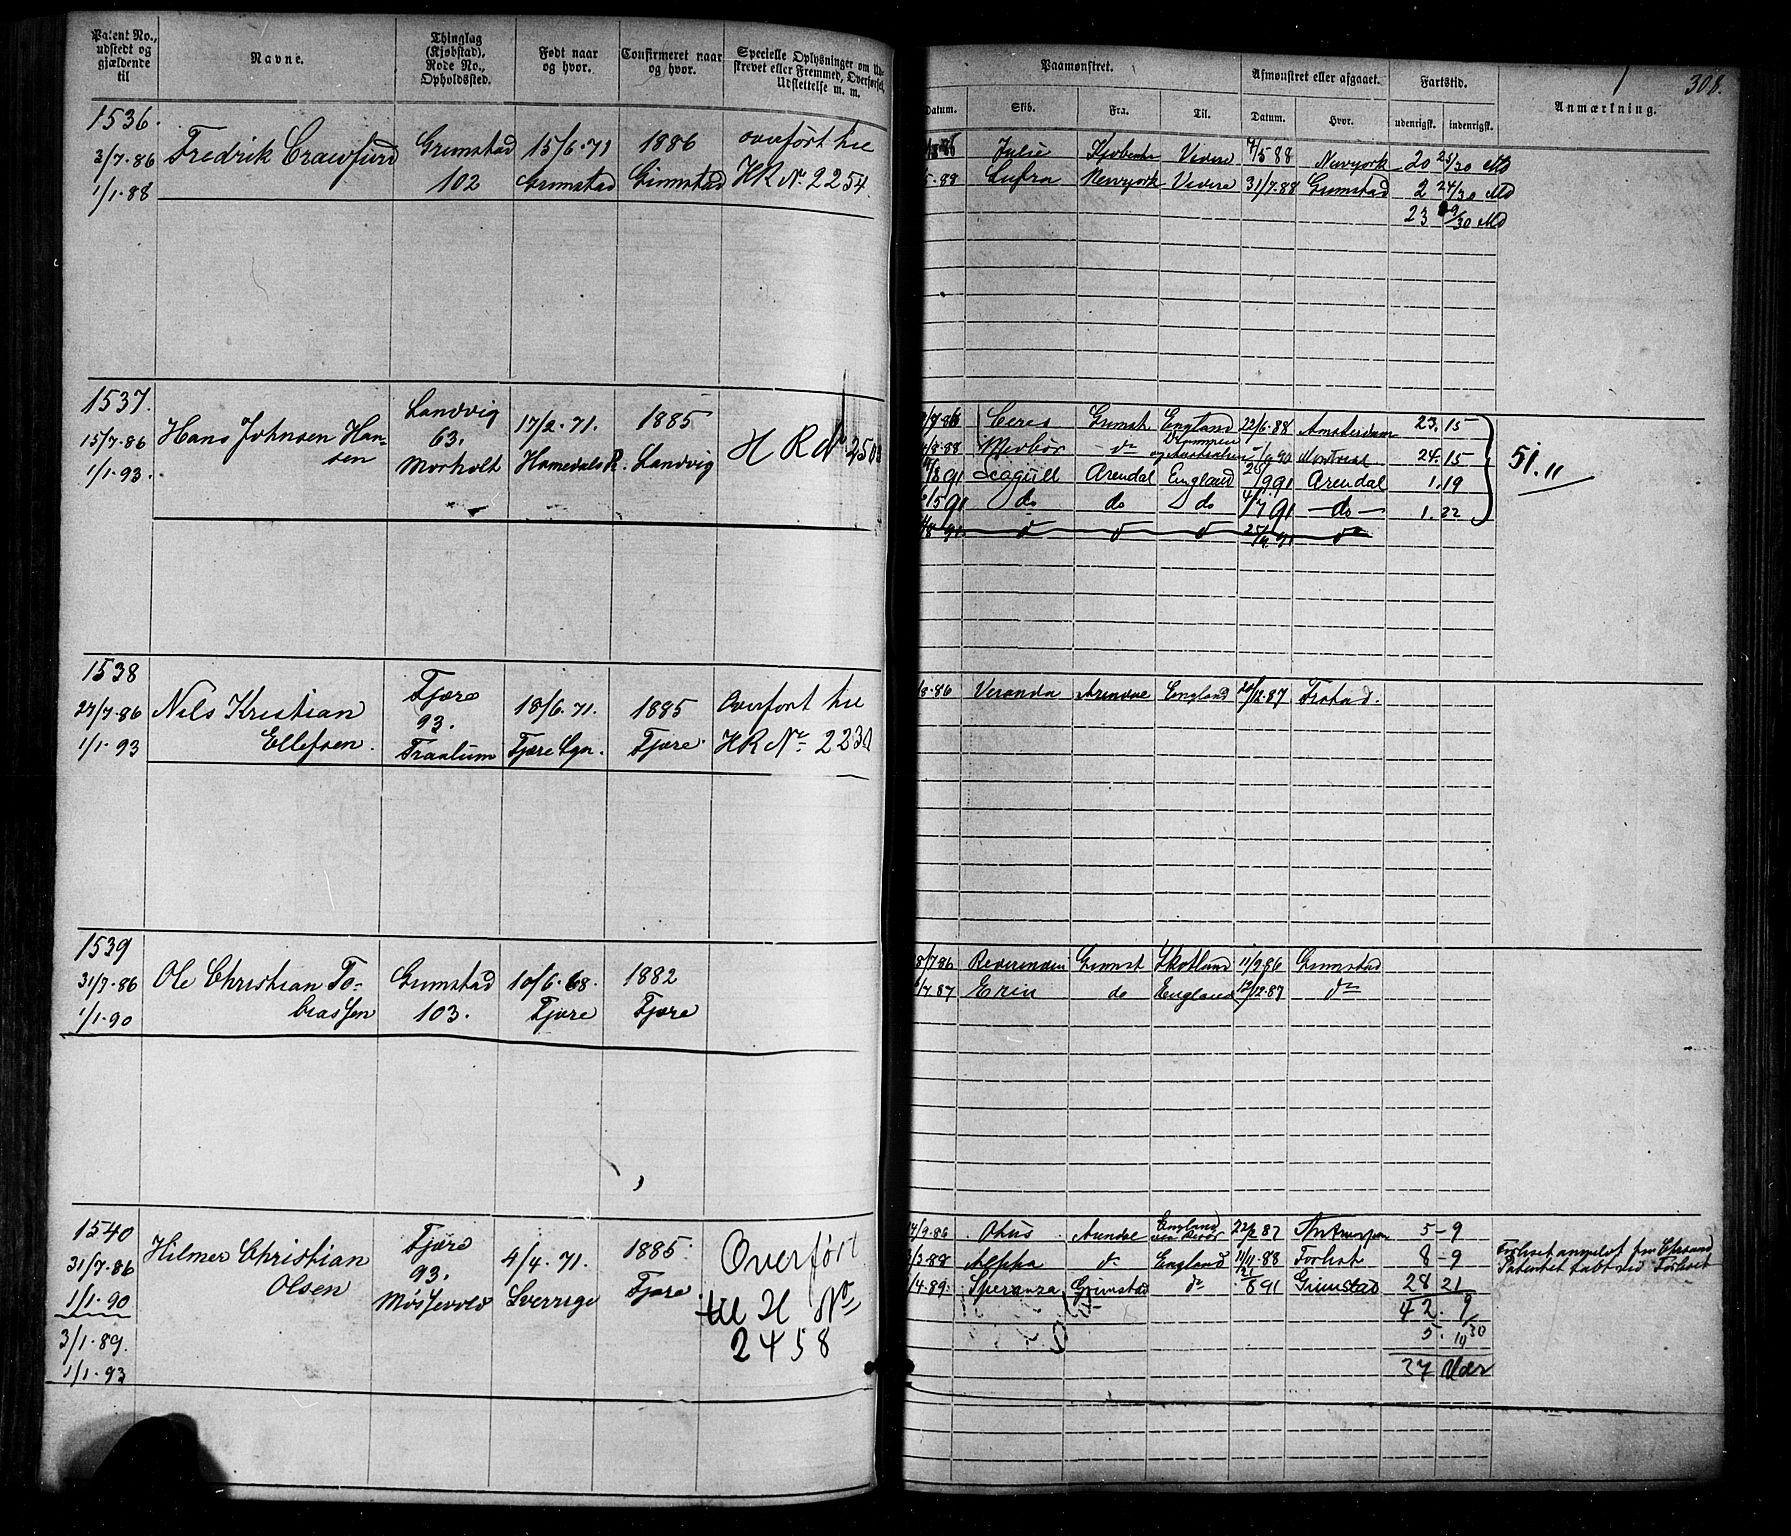 308.
Patent No., udstedt og gjældende til
Navne.
Thinglag (Kjøbstad), Rode No., Opholdssted.
Født naar og hvor.
Confirmeret naar og hvor.
Specielle Oplysninger om Udstrevet eller Fremmed, Overførsel, Udslettelse m. m.
Paamønstret.
Afmønstret eller afgaaet.
Fartstid.
Anmærkning.
Datum.
Skib.
Fra.
Til.
Datum.
Hvor.
udenrigst.
indenrigst.
1536.
3/7.86
1/1.88
Fredrik Crawfurd
Grimstad
102
15/6.71
Grimstad
1886
Grimstad
overført til
HR No 2254.
Julie Vedere 4/5 88 Newyork 20 25/30 Md
5.88 Sufra Newyork Vedere 31/7.88 Grimstad 2 24/30 Md
23 /30 Md
1537.
15/7.86
1/1.93.
Hans Johnsen Hansen
Landvig
63.
Morholt
17/2.71.
Homedals P.
1885
Landvig
HR No 250
/7.86 Ceres Grimst. England 22/6.88 Amsterdam 23.15
/8.88 do Drammen og Australien 90 Montreal 24.15
/8 91 Seagull Arendal England /9 91 Arendal 1.19
/5 91 do do do 4/7 91 do 1.22
/8 91
51.11
1538
27/7.86
1/1.93
Nils Kristian
Ellefsen.
Fjære
93.
Traalum
18/6.71.
Fjære Sgn.
1885
Fjære.
Overført til
HR No 2230
/8.86 Veranda Arendal England 20/12.87 Fiskad.
1539
31/7.86
1/1.90
Ole Christian Tobiassen
Grimstad
103.
10/6.68.
Fjære
1882
Fjære
8/7.86 Grimst Skotland 11/9 86 Grimstad
/7.87 Erin do England 12/12.87 do
1540
31/7.86
1/1.90
3/1.89.
1/1.93
Hilmer Christian
Olsen
Fjære
93.
Møsevold
4/4.71.
Sverrige
1885.
Fjære.
Overført
til H No
2458
14/9.86 Ohus Arendal England 22/2 87 Antwerpen 5-9
/3.88 Alpha do England 11/11.88 Forlist 8-9
/4.89. Speranza Grimstad do 6 91 Grimstad 28 21
42. 9/30
5. 10
37 Mdr
Forliset anmeldt fra Chrsand
Patentet tabt ved Forliset